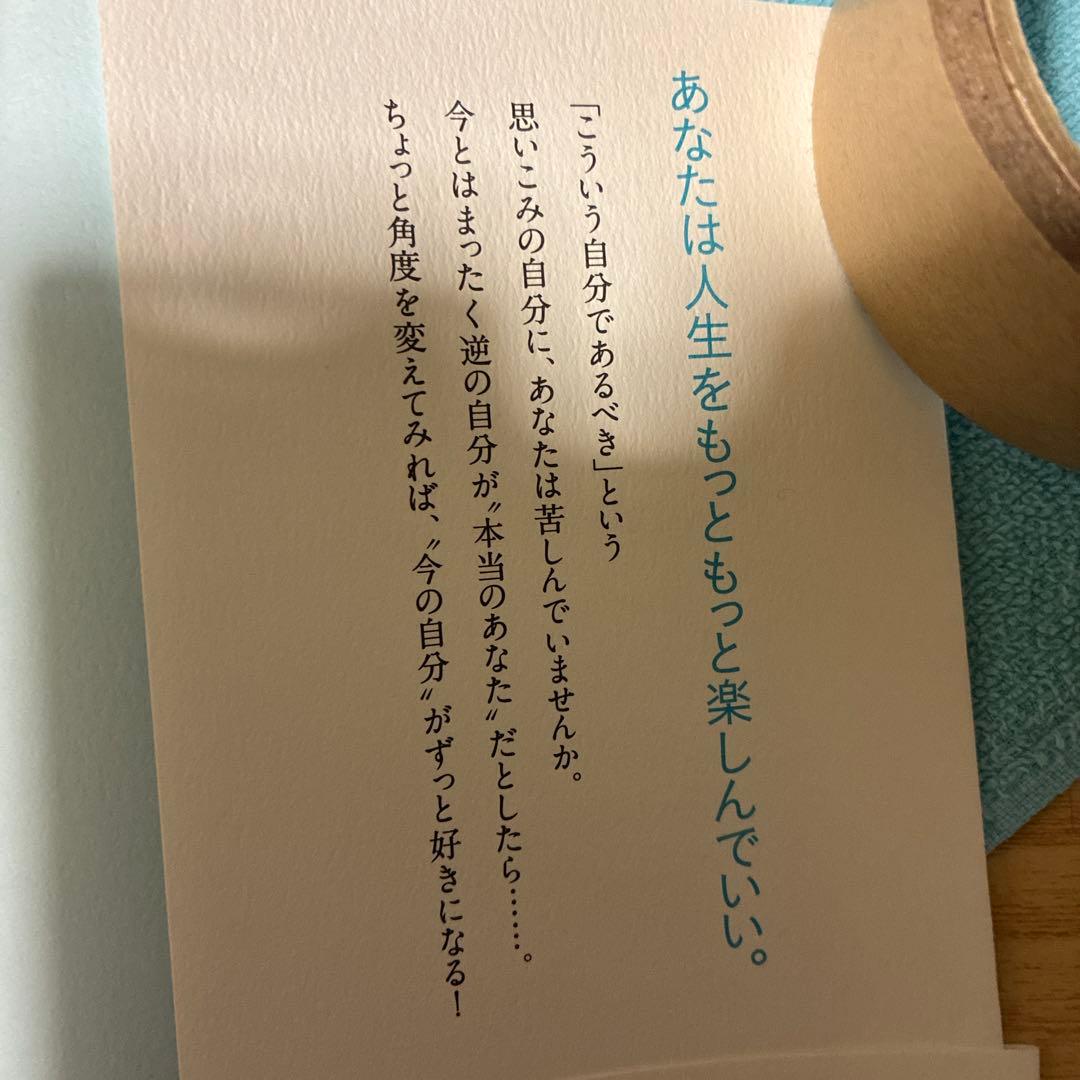 あなたは人生をもっともっと楽しんでいい。
「こういう自分であるべき」という
思いこみの自分に、あなたは苦しんでいませんか。
今とはまったく逆の自分が〝本当のあなた〟だとしたら……。
ちょっと角度を変えてみれば、〝今の自分〟がずっと好きになる！